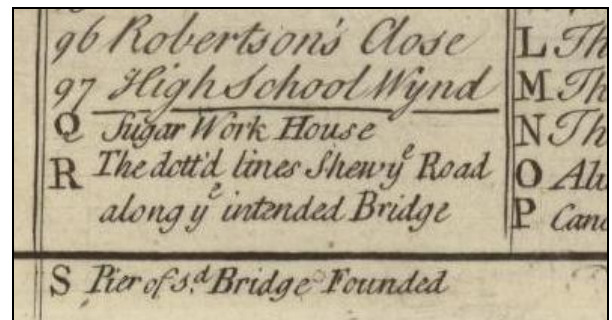 96 Robertson's Close
97 High School Wynd
Q Sugar Work House
R The dott'd lines Shew yᵉ Road
along yᵉ intended Bridge
S Pier of s.ᵈ Bridge Founded
L Th
M Th
N Th
O Alu
P Cand